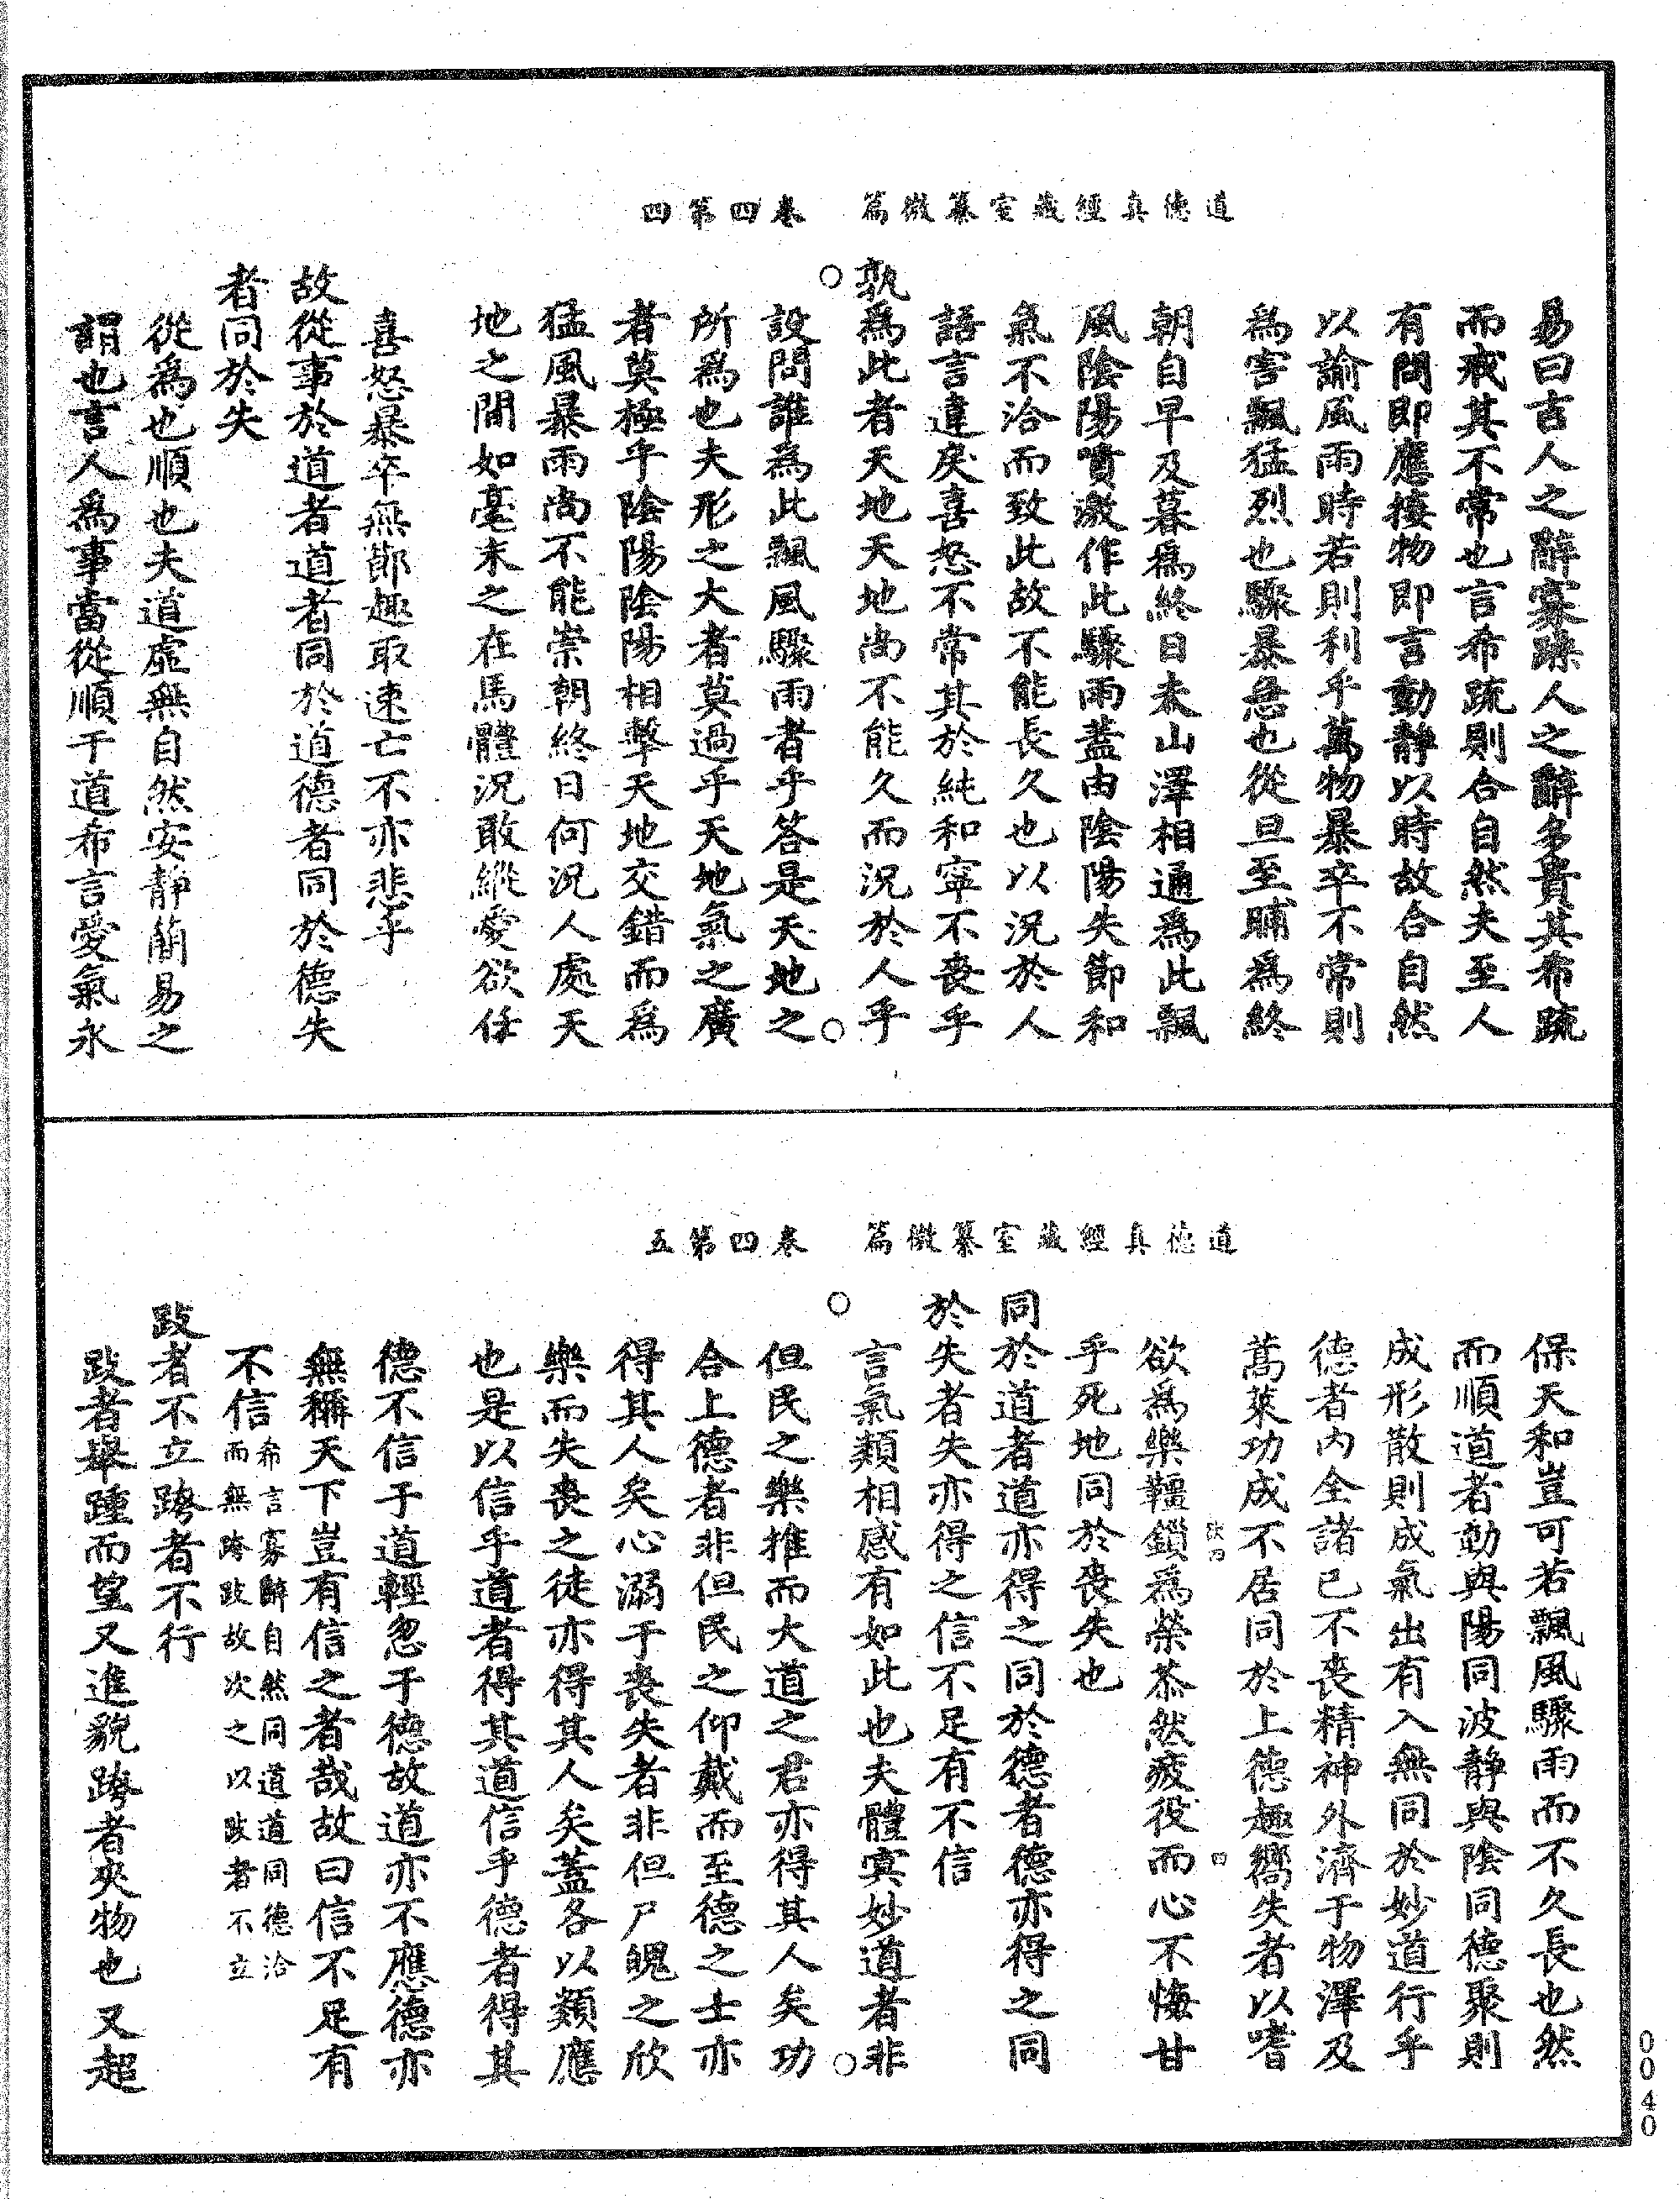 道德真經藏室纂微篇　卷四第四
易曰吉人之辭寡躁人之辭多貴其希疏
而戒其不常也言希疏則合自然夫至人
有問即應接物即言動靜以時故合自然
以諭風雨時若則利乎萬物暴卒不常則
為害飄猛烈也驟暴急也從旦至晡為終
朝自早及暮為終日夫山澤相通為此飄
風陰陽噴激作此驟雨蓋由陰陽失節和
氣不洽而致此故不能長久也以況於人
語言違戾喜怒不常其於純和寧不喪乎
孰為此者天地天地尚不能久而況於人乎
設問誰為此飄風驟雨者乎答是天地之
所為也夫形之大者莫過乎天地氣之廣
者莫極乎陰陽陰陽相擊天地交錯而為
猛風暴雨尚不能崇朝終日何況人處天
地之間如毫末之在馬體況敢縱愛欲任
喜怒暴卒無節趣取速亡不亦悲乎
故從事於道者道者同於道德者同於德失
者同於失
從為也順也夫道虛無自然安靜簡易之
謂也言人為事當從順于道希言愛氣永
道德真經藏室纂微篇　卷四第五
保天和豈可若飄風驟雨而不久長也然
而順道者動與陽同波靜與陰同德聚則
成形散則成氣出有入無同於妙道行乎
德者內全諸己不喪精神外濟于物澤及
萬萊功成不居同於上德趣嚮失者以嗜
四
欲為樂韁鎖為榮苶然疲役而心不悔甘
乎死地同於喪失也
同於道者道亦得之同於德者德亦得之同
於失者失亦得之信不足有不信
言氣類相感有如此也夫體冥妙道者非
但民之樂推而大道之君亦得其人矣功
合上德者非但民之仰戴而至德之士亦
得其人矣心溺于喪失者非但尸魄之欣
樂而失喪之徒亦得其人矣蓋各以類應
也是以信乎道者得其道信乎德者得其
德不信于道輕忽于德故道亦不應德亦
無稱天下豈有信之者哉故曰信不足有
不信希言寡辭自然同道道同德洽而無跨跂故次之以跂者不立
跂者不立跨者不行
跂者舉踵而望又進貌跨者夾物也又超
0040